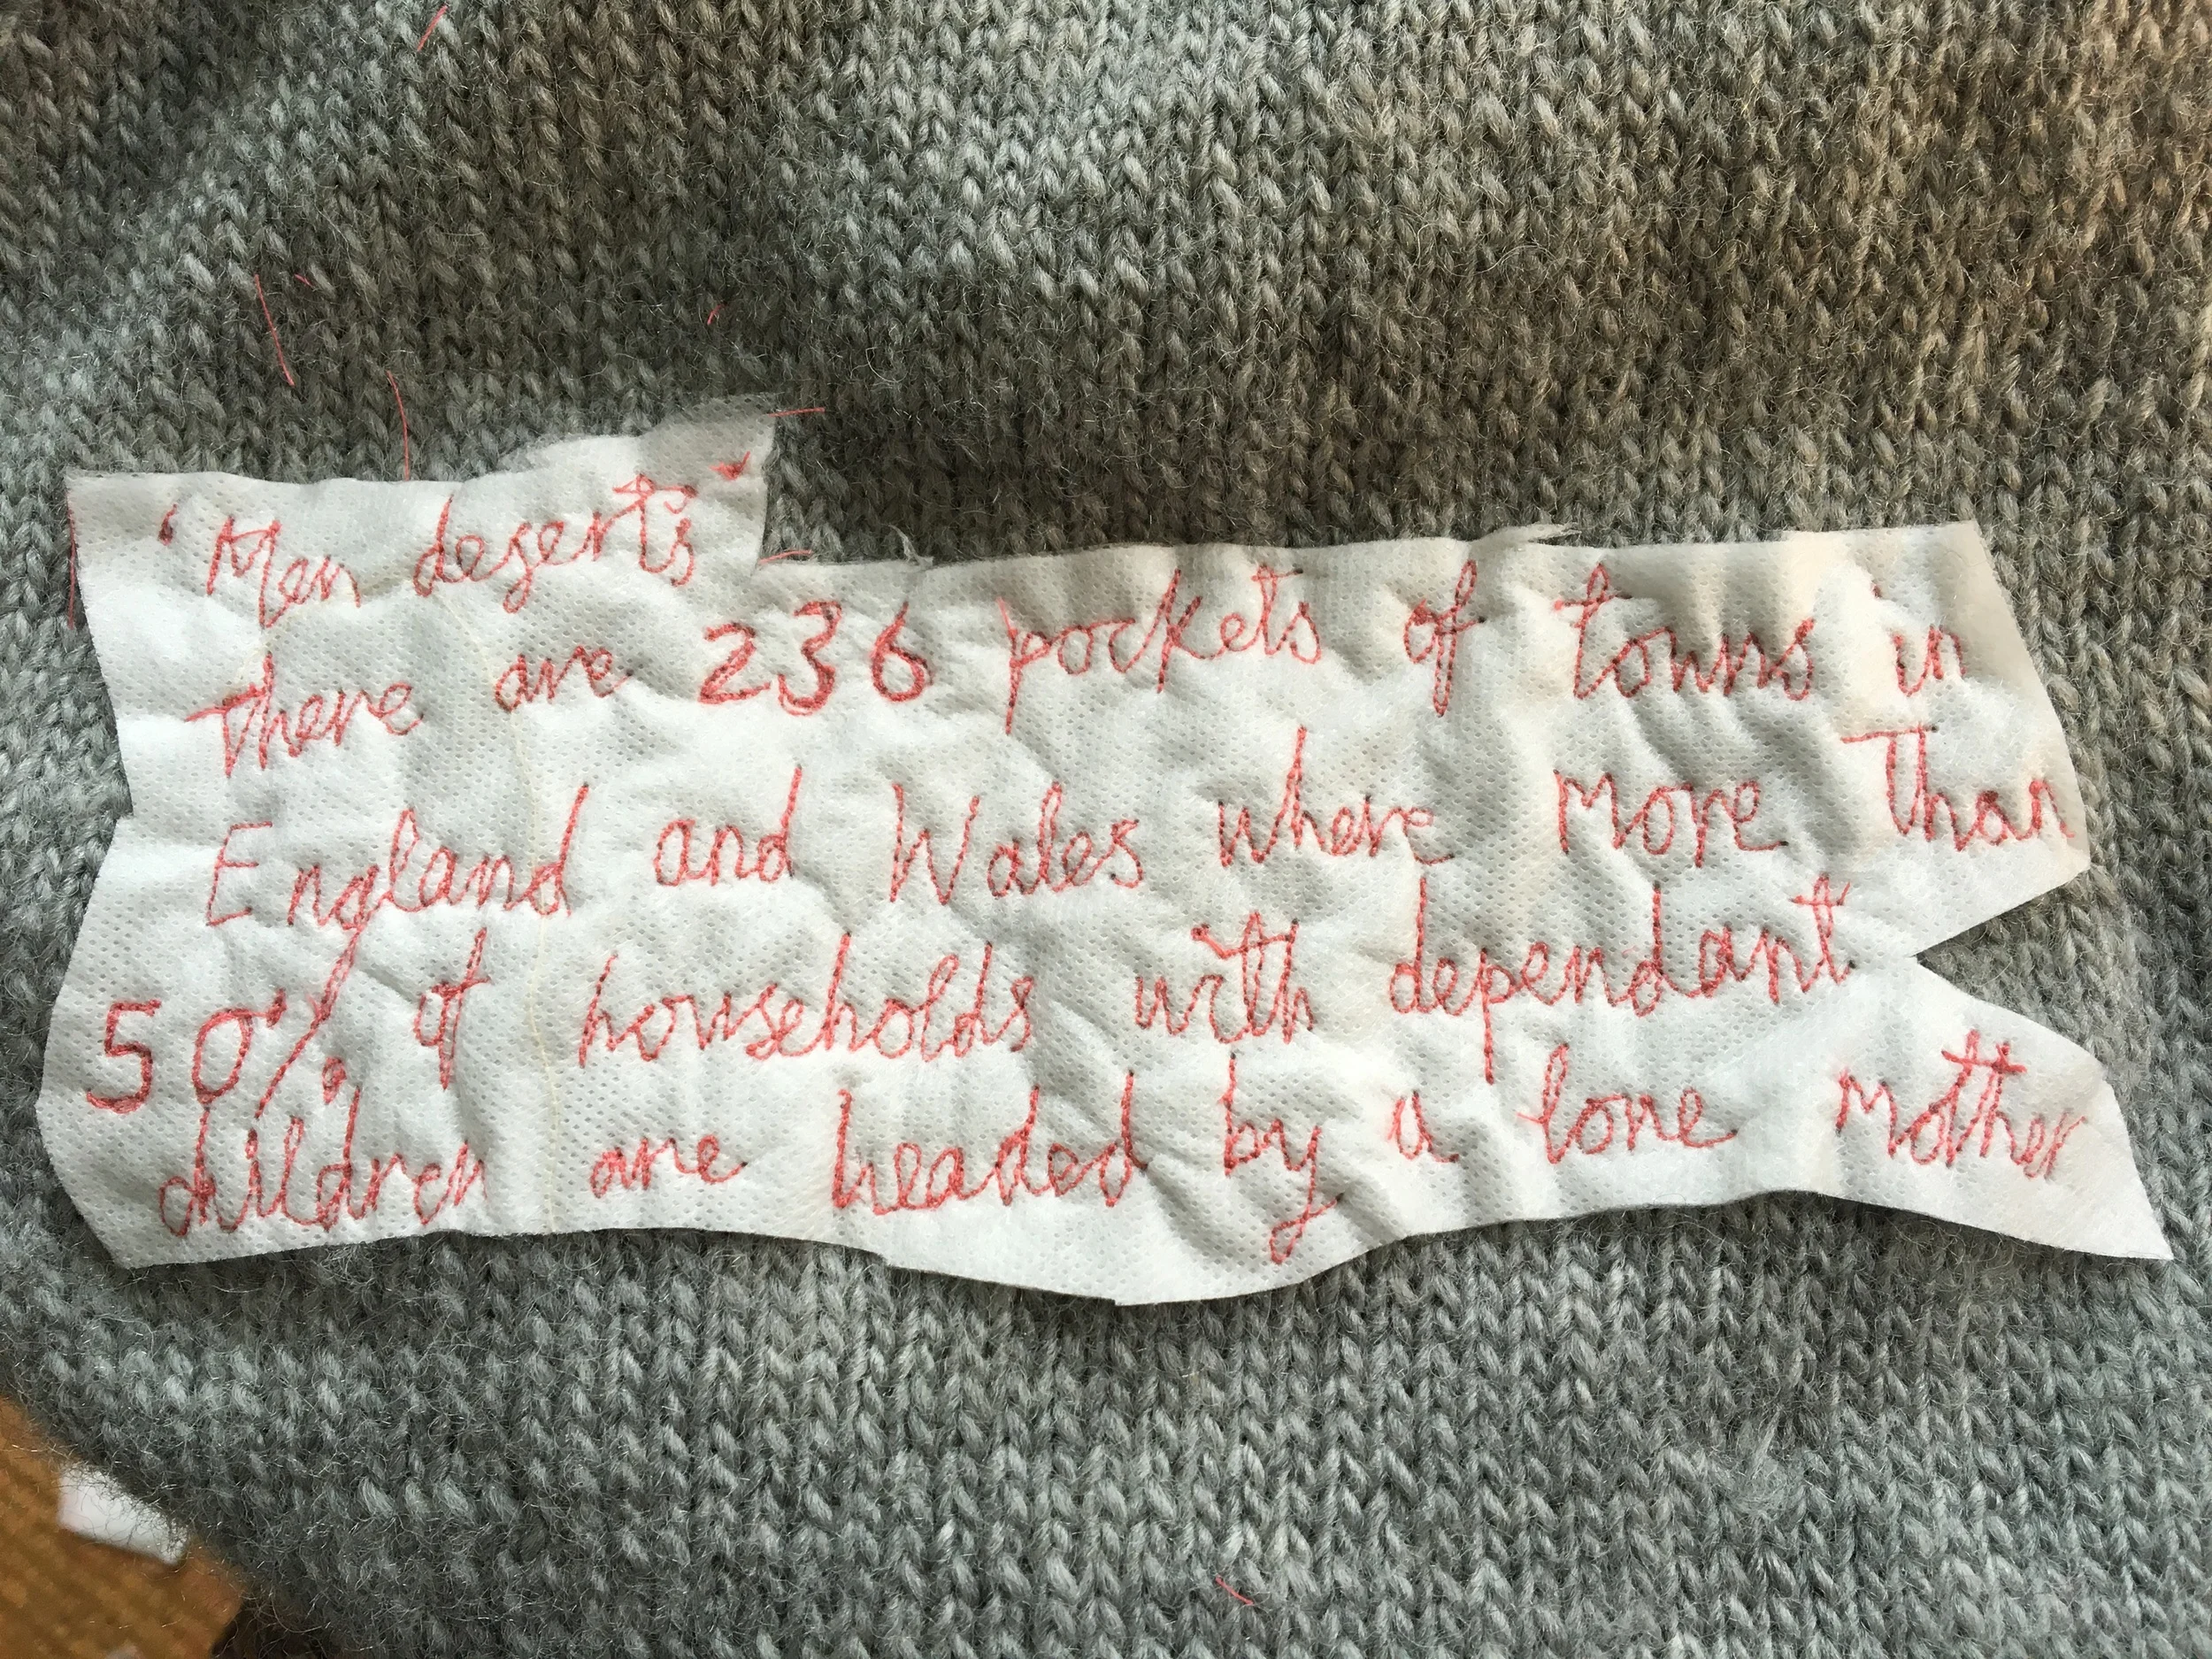 'Men deserts'
there are 236 pockets of towns in
England and Wales where more than
50% of households with dependant
children are headed by a lone mother